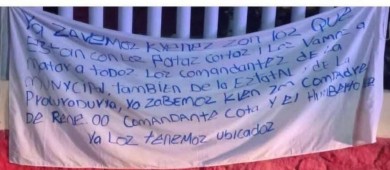 Ya ZAVEMOZ KIENEZ ZON LOZ QUE
EZTAN CON LOZ PATAZ CORTAZ! LOZ VAMOZ A
MATAR A TODOZ LOZ COMANDANTEZ DE LA
MUNYCIPAL, TAMBIEN DE LA EZTATAL DE LA
PROCURADURIA, YA ZOBEMOZ KIEN ZON COMPADRE
DE RENE OO COMANDANTE COTA Y EL HUMBERTO
Ya Loz TENEMOZ UBICADOZ